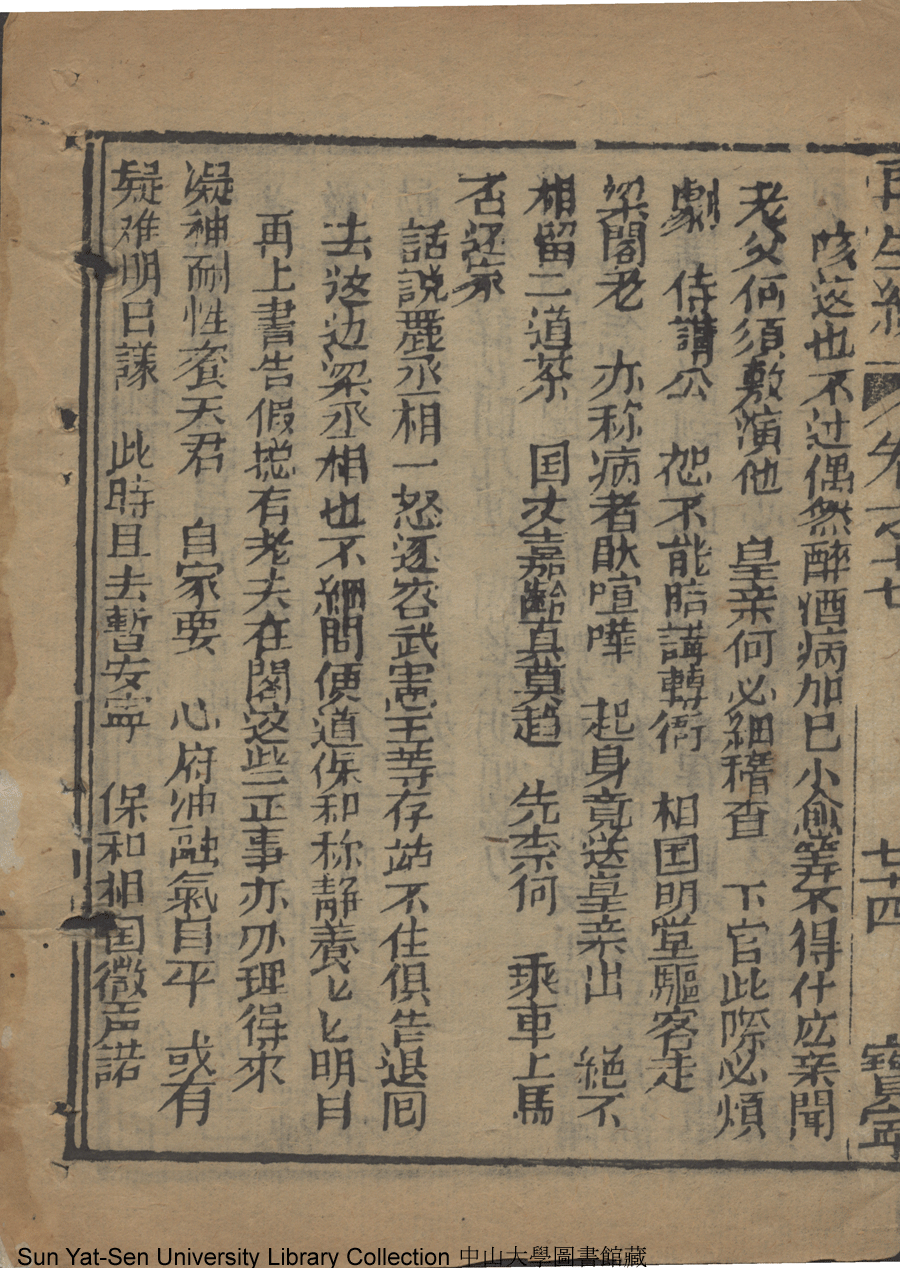 再生緣 卷之十七 七十四 寶寧
咳这也不过偶然醉酒病加已小愈筭不得什庅亲聞
老父何須敷演他 皇亲何必細稽查 下官此際必煩
劇 侍講公 恕不能陪講轉衙 相国明堂驅客走
梁閣老 亦称病者猒喧嘩 起身竟送皇亲出 絕不
相留二道茶 国丈嘉齡真莫趋 先柰何 乘車上馬
各还家
話說酈丞相一怒逐容武憲王等存站不住俱告退囘
去这边梁丞相也不細問便道保和称靜養匕匕明日
再上書告假搃有老夫在閣这些正事亦办理得來
凝神耐性養天君 自家要 心府冲融氣自平 或有
疑难明日議 此時且去暫安寧 保和相国微声諾
Sun Yat-Sen University Library Collection 中山大學圖書館藏